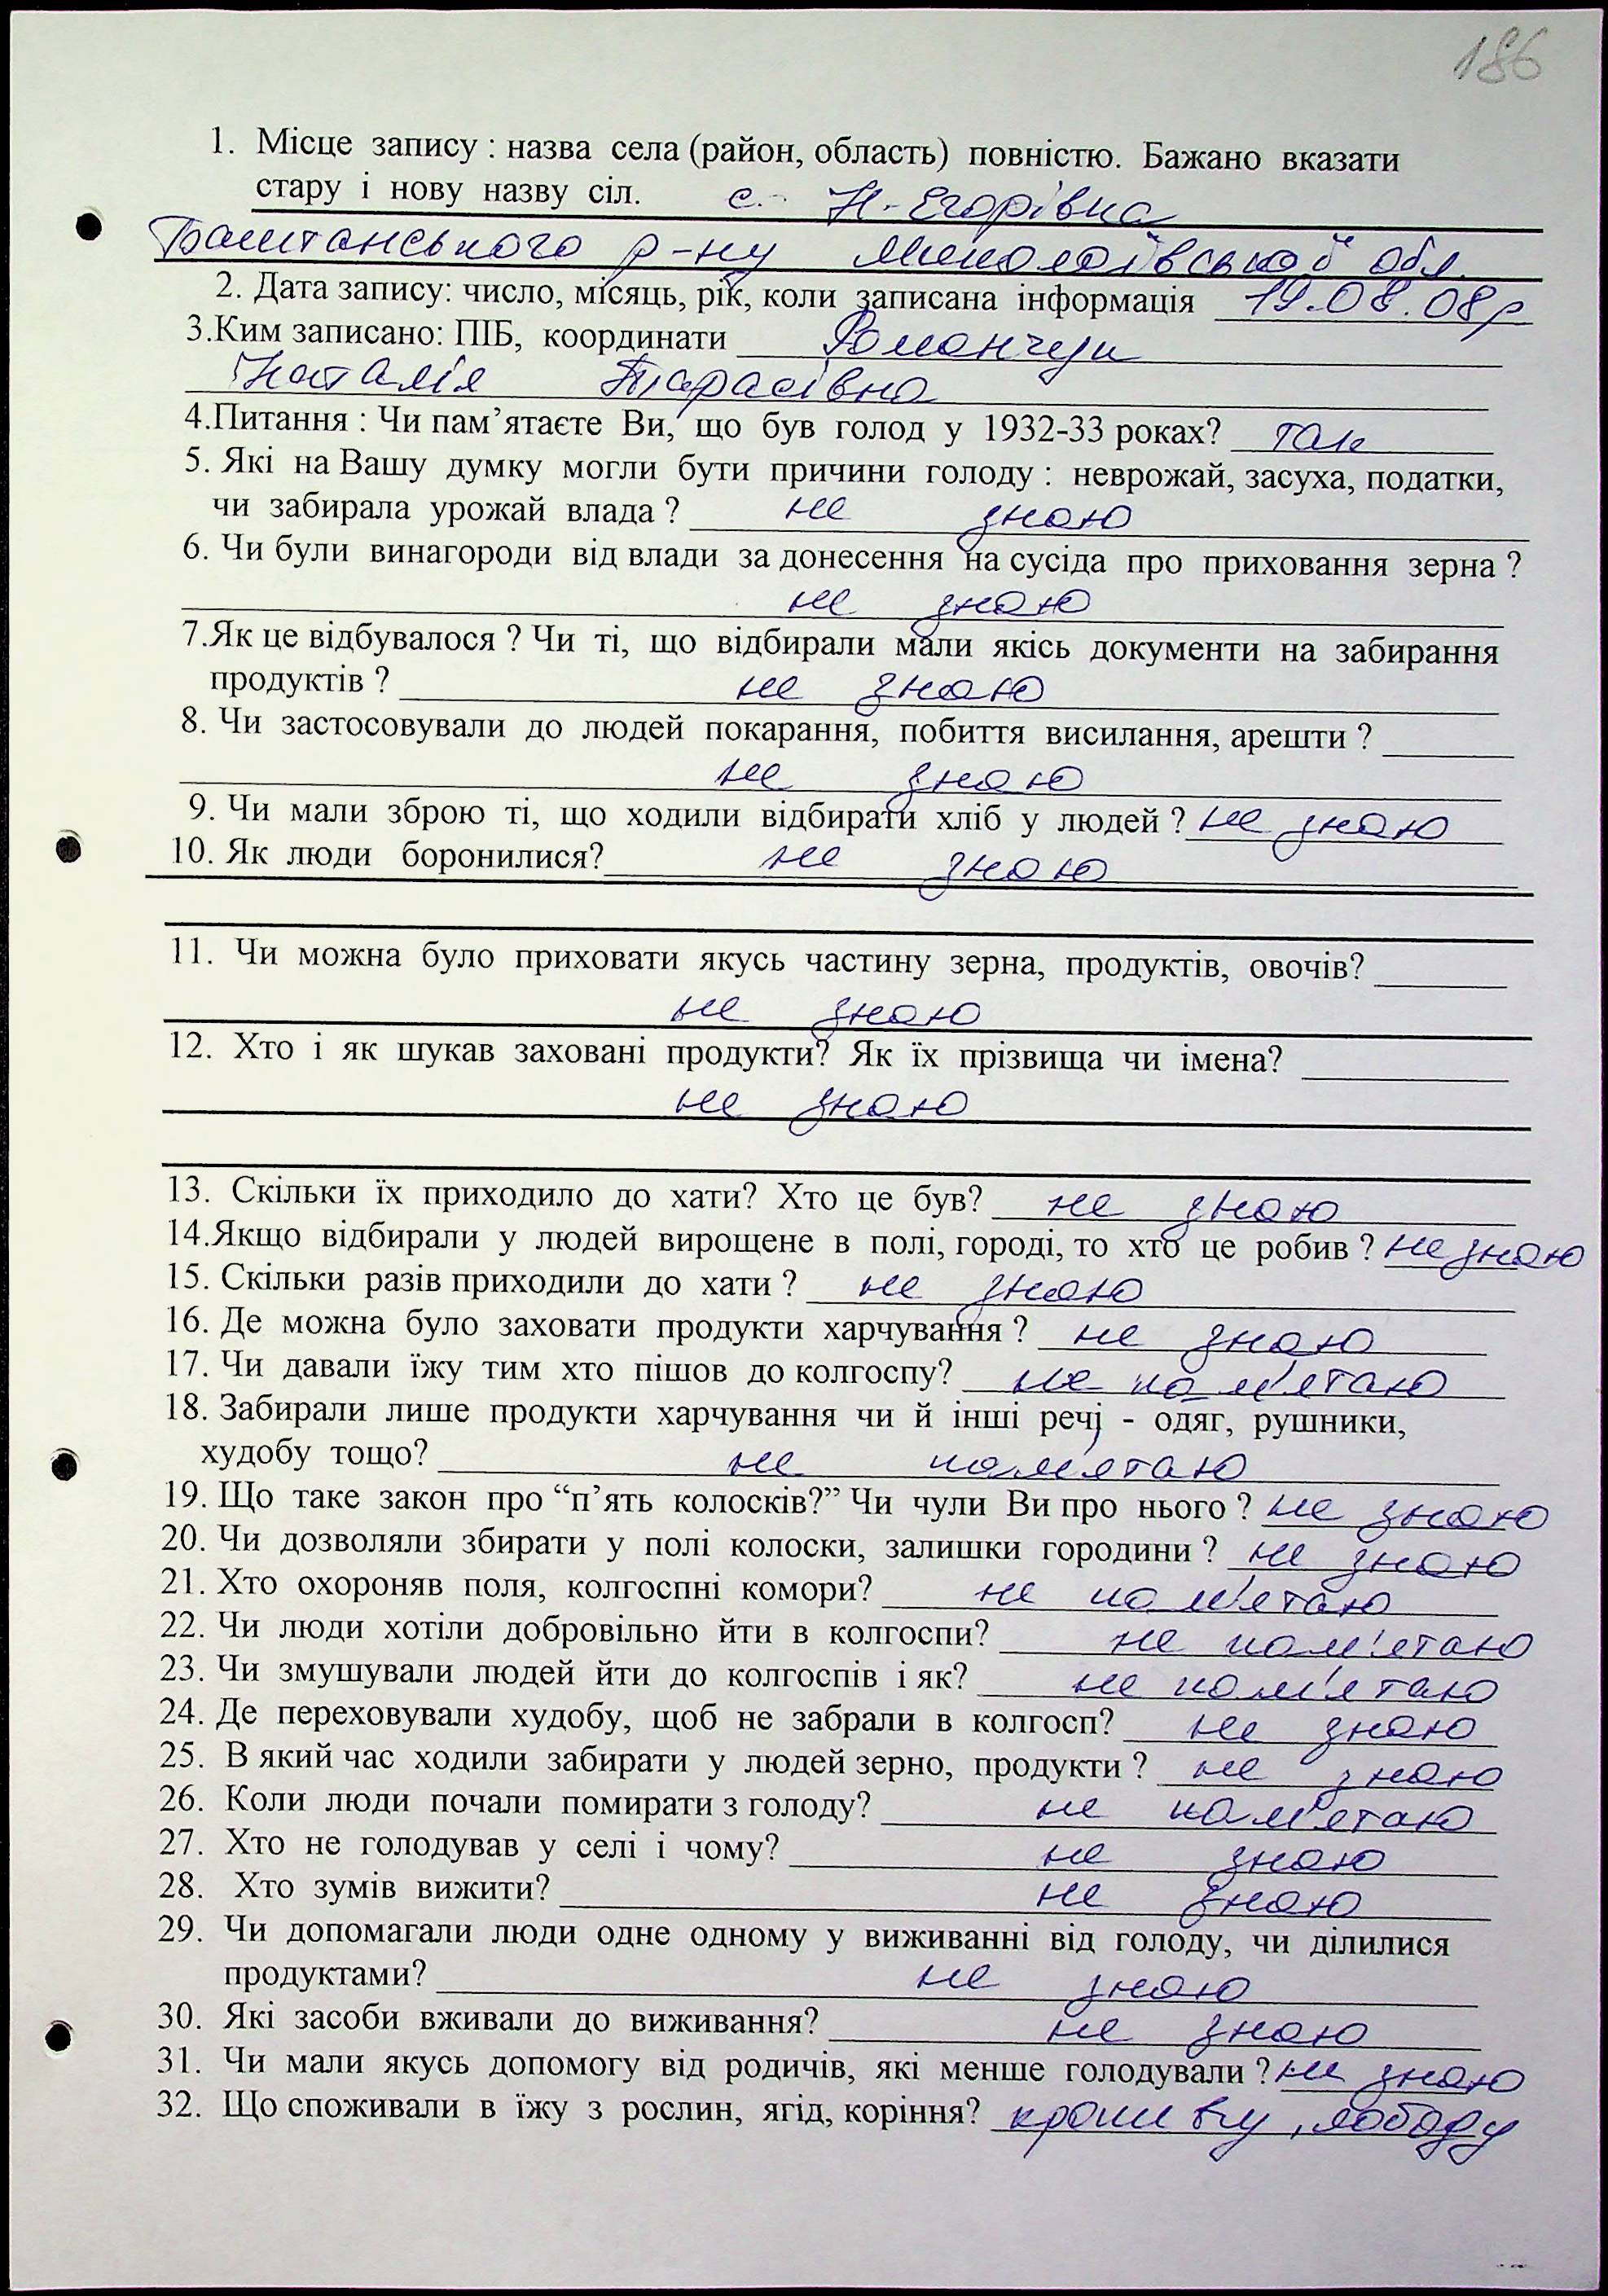 186
1. Місце запису : назва села (район, область) повністю. Бажано вказати
стару і нову назву сіл. с. Н-Єгорівка
Баштанського р-ну Миколаївської обл.
2. Дата запису: число, місяць, рік, коли записана інформація 19.08.08р
3.Ким записано: ПІБ, координати Романчук
Наталія Тарасівна
4.Питання : Чи пам’ятаєте Ви, що був голод у 1932-33 роках? так
5. Які на Вашу думку могли бути причини голоду : неврожай, засуха, податки,
чи забирала урожай влада ? не знаю
6. Чи були винагороди від влади за донесення на сусіда про приховання зерна ?
не знаю
7.Як це відбувалося ? Чи ті, що відбирали мали якісь документи на забирання
продуктів ? не знаю
8. Чи застосовували до людей покарання, побиття висилання, арешти ?
не знаю
9. Чи мали зброю ті, що ходили відбирати хліб у людей ? не знаю
10. Як люди боронилися? не знаю
11. Чи можна було приховати якусь частину зерна, продуктів, овочів?
не знаю
12. Хто і як шукав заховані продукти? Як їх прізвища чи імена?
не знаю
13. Скільки їх приходило до хати? Хто це був? не знаю
14.Якщо відбирали у людей вирощене в полі, городі, то хто це робив ? не знаю
15. Скільки разів приходили до хати ? не знаю
16. Де можна було заховати продукти харчування ? не знаю
17. Чи давали їжу тим хто пішов до колгоспу? не пам'ятаю
18. Забирали лише продукти харчування чи й інші речі - одяг, рушники,
худобу тощо? не пам'ятаю
19. Що таке закон про “п’ять колосків?” Чи чули Ви про нього ? не знаю
20. Чи дозволяли збирати у полі колоски, залишки городини ? не знаю
21. Хто охороняв поля, колгоспні комори? не пам'ятаю
22. Чи люди хотіли добровільно йти в колгоспи? не пам'ятаю
23. Чи змушували людей йти до колгоспів і як? не пам'ятаю
24. Де переховували худобу, щоб не забрали в колгосп? не знаю
25. В який час ходили забирати у людей зерно, продукти ? не знаю
26. Коли люди почали помирати з голоду? не пам'ятаю
27. Хто не голодував у селі і чому? не знаю
28. Хто зумів вижити? не знаю
29. Чи допомагали люди одне одному у виживанні від голоду, чи ділилися
продуктами? не знаю
30. Які засоби вживали до виживання? не знаю
31. Чи мали якусь допомогу від родичів, які менше голодували ? не знаю
32. Що споживали в їжу з рослин, ягід, коріння? кропиву, лободу